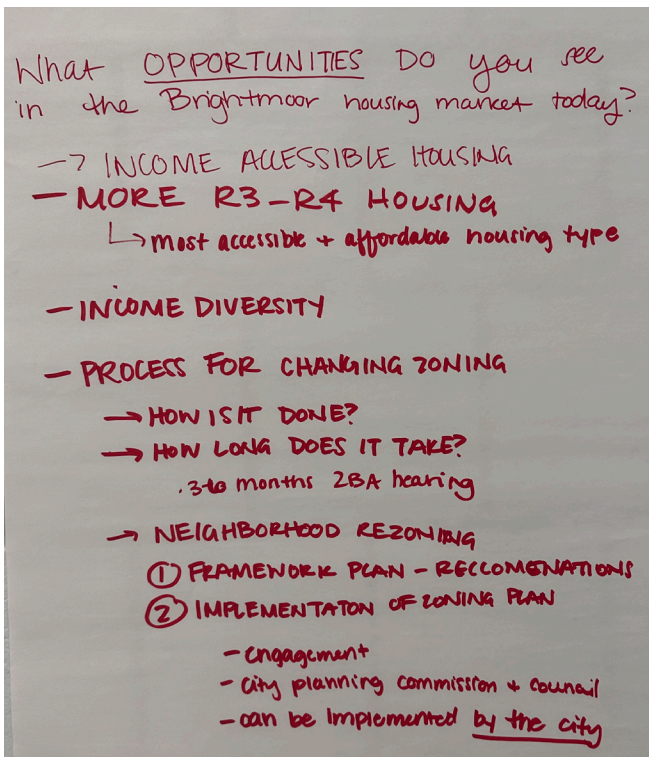 What OPPORTUNITIES DO you see
in the Brightmoor housing market today?
-> INCOME ACCESSIBLE HOUSING
- MORE R3-R4 HOUSING
↳ most accessible + affordable housing type
- INCOME DIVERSITY
- PROCESS FOR CHANGING ZONING
→ HOW IS IT DONE?
→ HOW LONG DOES IT TAKE?
months ZBA hearing
→ NEIGHBORHOOD REZONING
① FRAMEWORK PLAN - RECCOMENATIONS
② IMPLEMENTATON OF ZONING PLAN
- engagement
- city planning commission + council
- can be implemented by the city